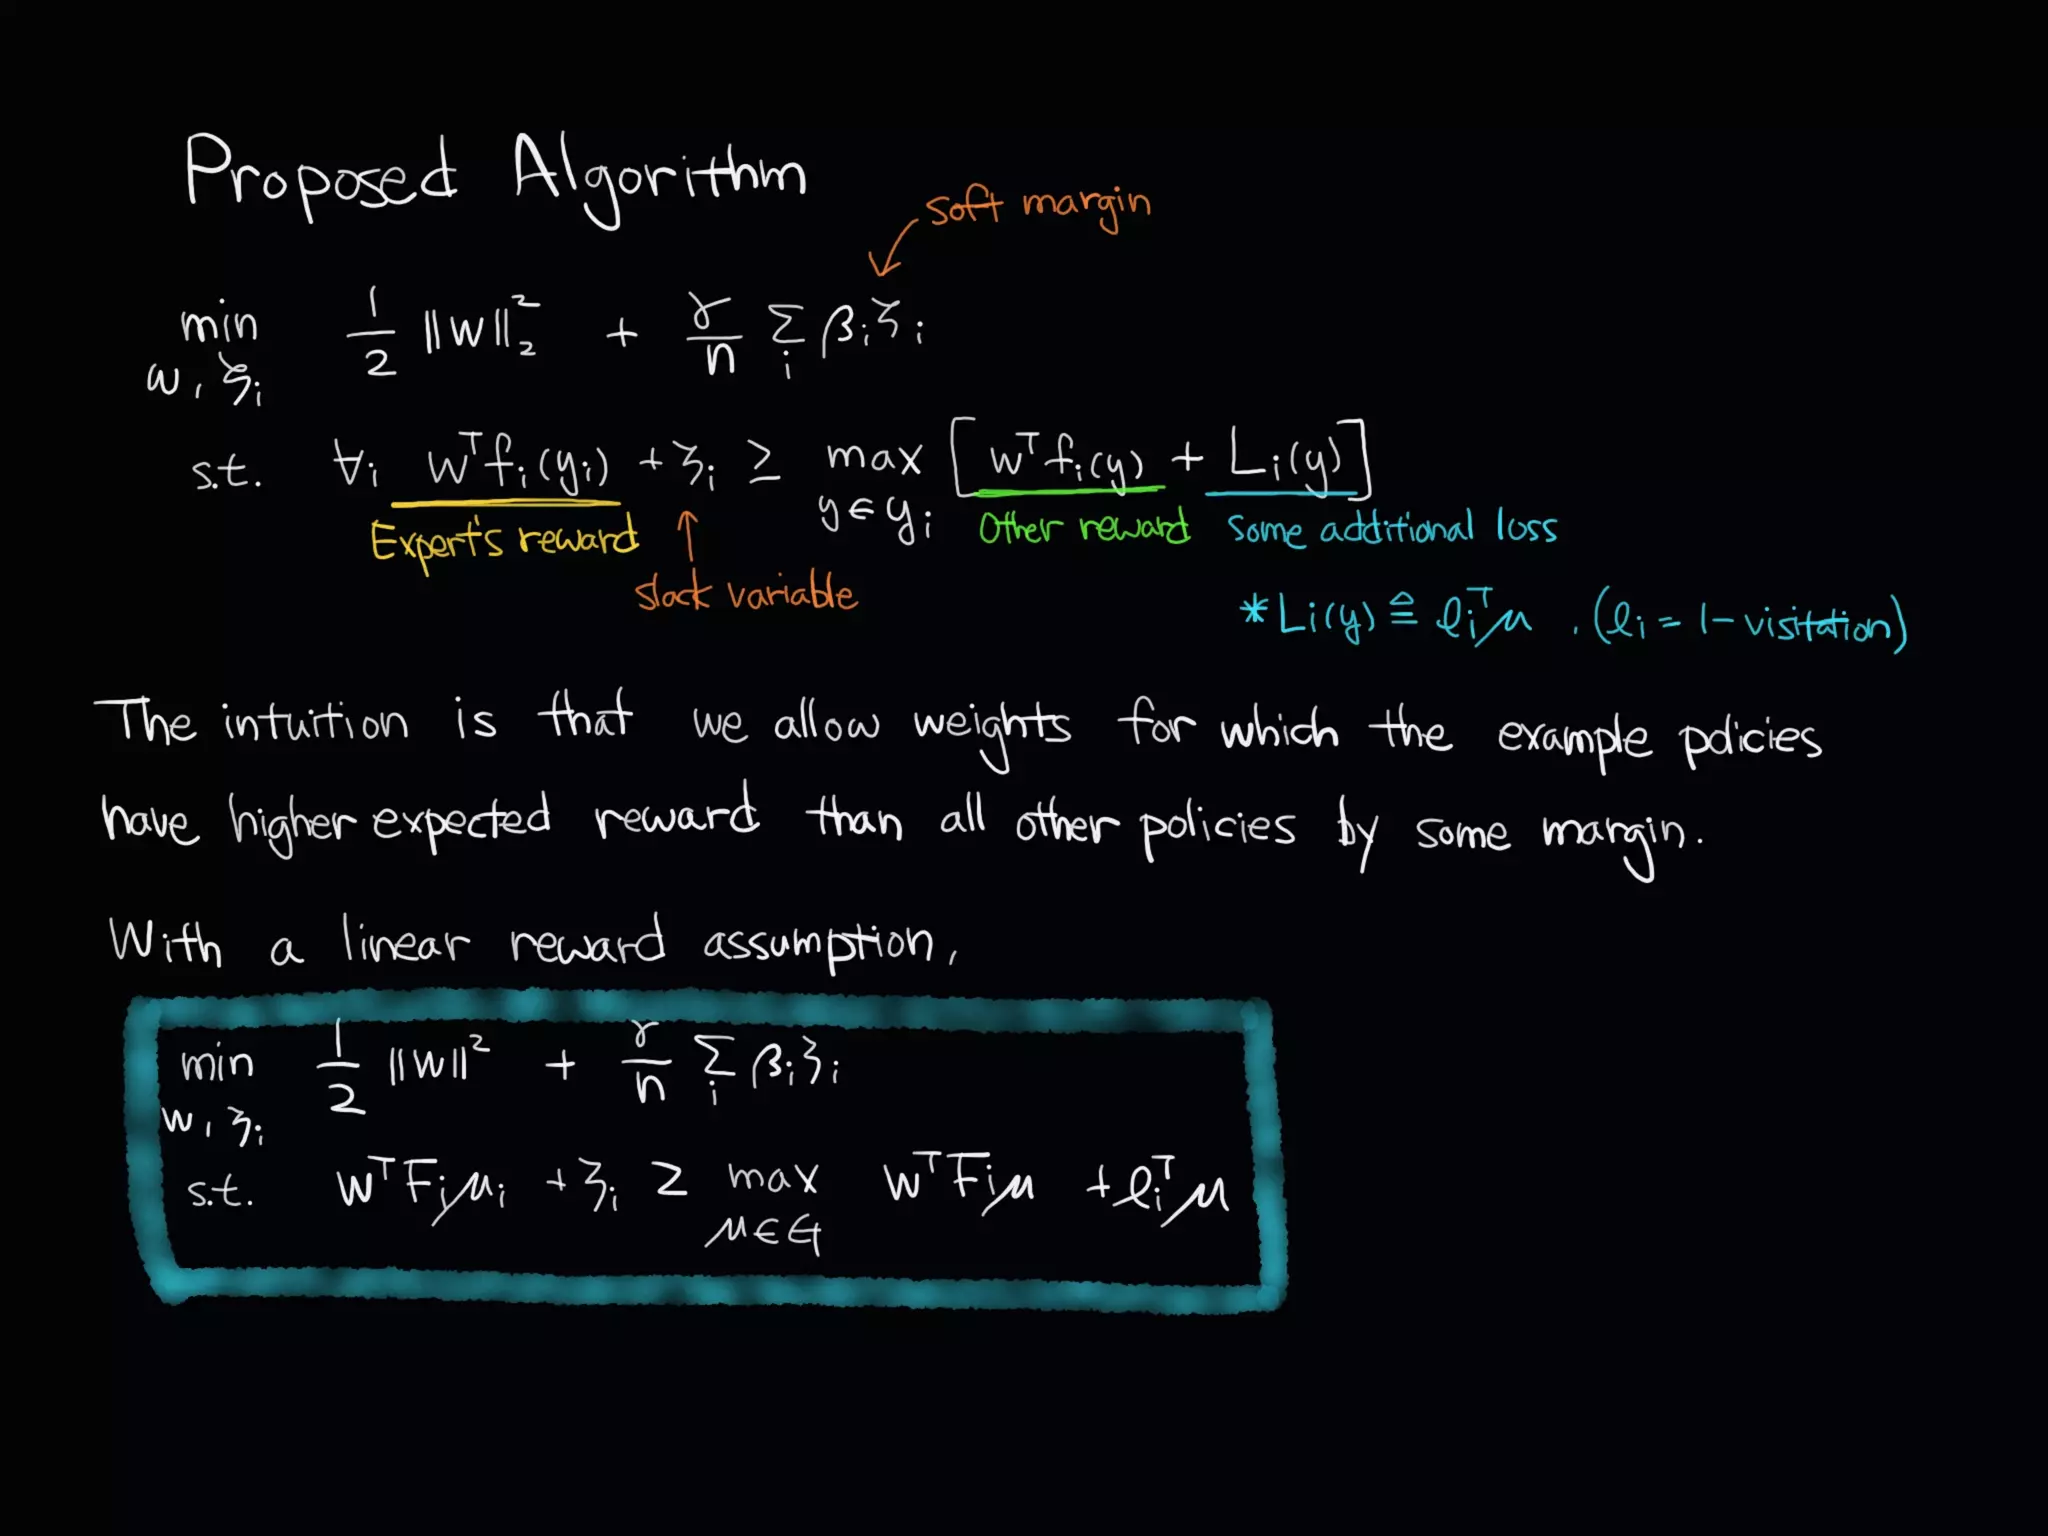 Proposed Algorithm
soft margin
min 1/2 ||w||₂² + γ/n Σ_i β_i ζ_i
w, ζ_i
s.t. ∀i wᵀf_i(y_i) + ζ_i ≥ max [wᵀf_i(y) + L_i(y)]
y∈𝒴_i
Expert's reward
Other reward
Some additional loss
slack variable
*L_i(y) ≙ ℓ_iᵀμ . (ℓ_i = 1-visitation)
The intuition is that we allow weights for which the example policies
have higher expected reward than all other policies by some margin.
With a linear reward assumption,
min 1/2 ||w||² + γ/n Σ_i β_i ζ_i
w, ζ_i
s.t. wᵀF_iμ_i + ζ_i ≥ max wᵀF_iμ + ℓ_iᵀμ
μ∈G